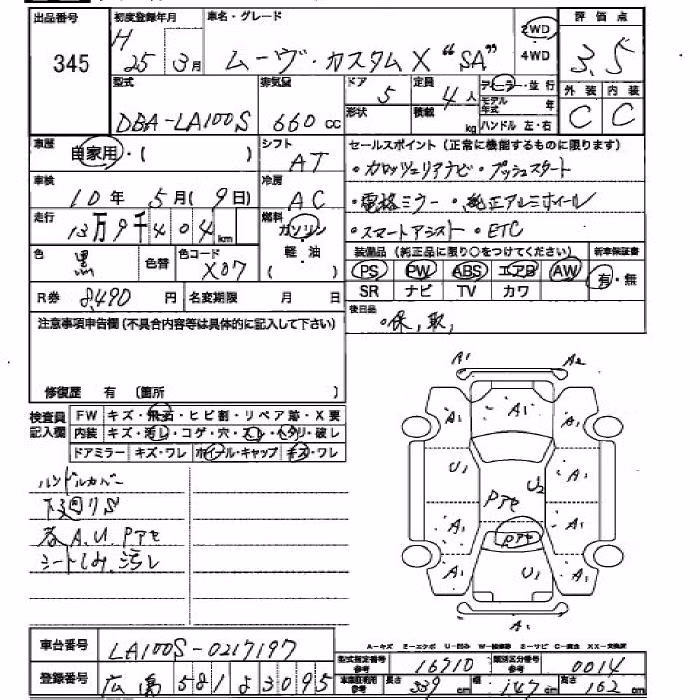 出品番号
345
初度登録年月
H
25年 3月
車名・グレード
ムーヴ・カスタム X "SA"
2WD
4WD
評価点
3.5
外装 内装
C C
型式
DBA-LA100S
排気量
660 cc
ドア
5
形状
定員
4人
積載
kg
ディーラー・並行
モデル年式 年
ハンドル 左・右
車歴
自家用・( )
シフト
AT
車検
10年 5月(9日)
冷房
AC
走行
13万9千404km
燃料
ガソリン
軽・油
( )
色
黒
色替
色コード
X07
R券 8,490円
名変期限 月 日
セールスポイント(正常に機能するものに限ります)
・カロッツェリアナビ・プッシュスタート
・電格ミラー・純正アルミホイール
・スマートアシスト・ETC
装備品(純正品に限り○をつけてください)
新車保証書
PS PW ABS エアB AW
SR ナビ TV カワ
有・無
後日品
・保,取,
注意事項申告欄(不具合内容等は具体的に記入して下さい)
修復歴 有 (箇所 )
検査員
記入欄
FW キズ・飛石・ヒビ割・リペア跡・X要
内装 キズ・汚レ・コゲ・穴・スレ・ヘタリ・破レ
ドアミラー キズ・ワレ ホイール・キャップ キズ・ワレ
ハンドルカバー
下廻りS
各A.U.Pアセ
シートしみ、汚レ
A1 A2
A1 A1 A1
U1 A1
Pアセ U2
A1 A1
Pアセ
A1 U1 A1
A1
A-キズ E-エクボ U-凹ミ W-補修跡 S-サビ C-腐食 XX-交換済
車台番号
LA100S-0217197
登録番号
広島 581 よ 3095
型式指定番号
参考
16710
類別区分番号
参考
0014
車庫証明用
参考
長さ 339cm
幅 147cm
高さ 162cm